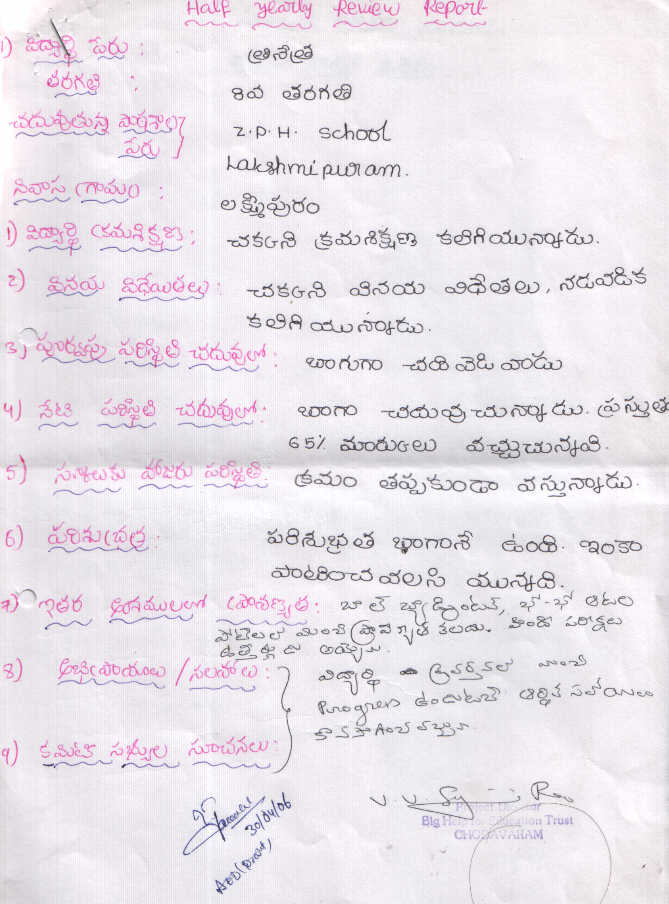 Half yearly Review Report
1) విద్యార్థి పేరు : త్రినేత్ర
తరగతి : 8వ తరగతి
చదువుతున్న పాఠశాల Z.P.H. School
పేరు Lakshmipuram.
నివాస గ్రామం : లక్ష్మీపురం
1) విద్యార్థి క్రమశిక్షణ : చక్కని క్రమశిక్షణ కలిగియున్నాడు.
2) వినయ విధేయతలు : చక్కని వినయ విధేతలు, నడవడిక
కలిగి యున్నాడు.
3) పూర్వపు పరిస్థితి చదువులో : బాగుగా చదివెడి వాడు
4) నేటి పరిస్థితి చదువులో : బాగా చదువు చున్నాడు. ప్రస్తుత
65% మార్కులు వచ్చుచున్నవి.
5) స్కూలుకు హాజరు పరిస్థితి : క్రమం తప్పకుండా వస్తున్నాడు.
6) పరిశుభ్రత : పరిశుభ్రత బాగానే ఉంది. ఇంకా
పాటించ వలసి యున్నది.
7) ఇతర అంశములలో ప్రావీణ్యత : బాల్ బ్యాడ్మింటన్, ఖో-ఖో ఆటల
పోటీలలో మంచి కలదు. హిందీ పరీక్షలు
8) అభిప్రాయలు / సలహాలు : విద్యార్థి మంచి
Progress ఉండుటచే ఆర్థిక సహాయం
9) కమిటి సభ్యుల సూచనలు :
30/04/06
Project Director
Big Help for Education Trust
CHODAVARAM